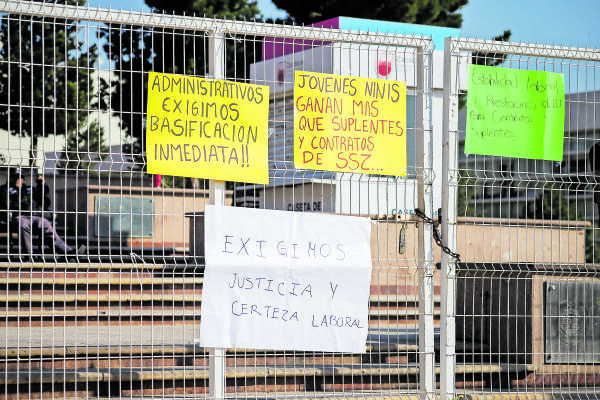 ADMINISTRATIVOS
EXIGIMOS
BASIFICACION
INMEDIATA!!
JOVENES NINIS
GANAN MAS
QUE SUPLENTES
Y CONTRATOS
DE SSZ...
Estabilidad laboral
Y Prestaciones de
Para Contratos
Suplentes
CASETA DE
EXIGIMOS
JUSTICIA Y
CERTEZA LABORAL